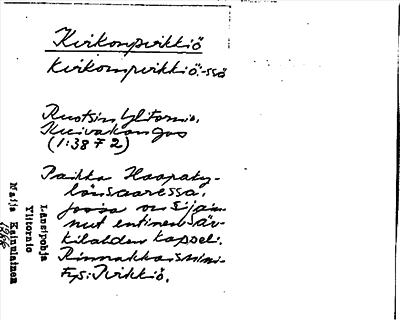 Kirkonpirkkiö
Kirkonpirkkiö:-ssä
Ruotsin Ylitornio.
Kuivakangas
(1:38 F 2)
Paikka Haapaky-
länsaaressa,
jossa on sijain-
nut entinen Sär-
kilahden kappeli.
Rinnakkaisnimi-
tys: Pirkkiö.
Länsipohja
Ylitornio
Maija Kainulainen